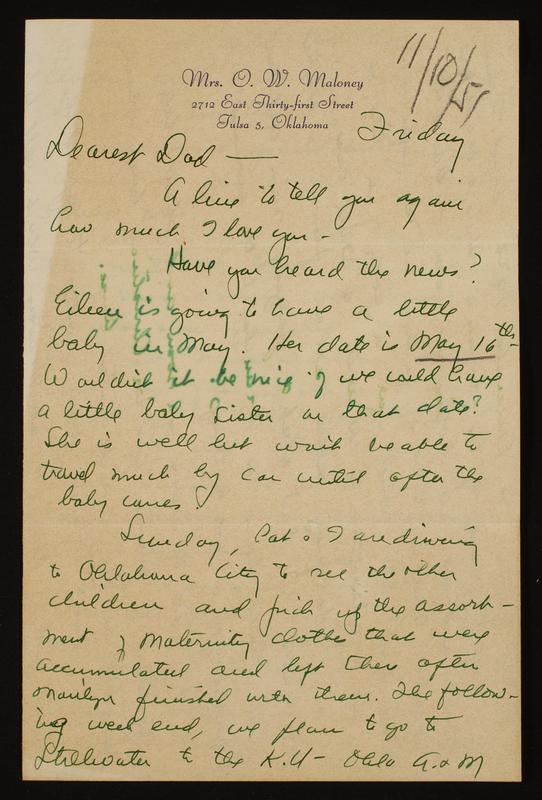 11/10/51
Mrs. O. W. Maloney
2712 East Thirty-first Street
Tulsa 5, Oklahoma
Friday
Dearest Dad —
A line to tell you again
how much I love you -
Have you heard the news?
Eileen is going to have a little
baby in May. Her date is May 16th -
Wouldn't it be nice if we could have
a little baby sister on that date?
She is well but won't be able to
travel much by car until after the
baby comes.
Sunday, Pat & I are driving
to Oklahoma City to see the other
children and pick up the assort-
ment of maternity clothes that were
accumulated and left there after
Marilyn finished with them. The follow-
ing week end, we plan to go to
Stillwater to the K.U - Okla A. & M